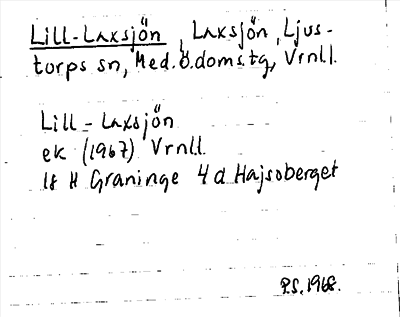 Lill-Laxsjön, Laxsjön, Ljus-
torps sn, Med. ö. doms.tg, Vrnll.
Lill-Laxsjön
ek (1967) Vrnll.
18 H Graninge 4 d Hajsoberget
P.S. 1968.